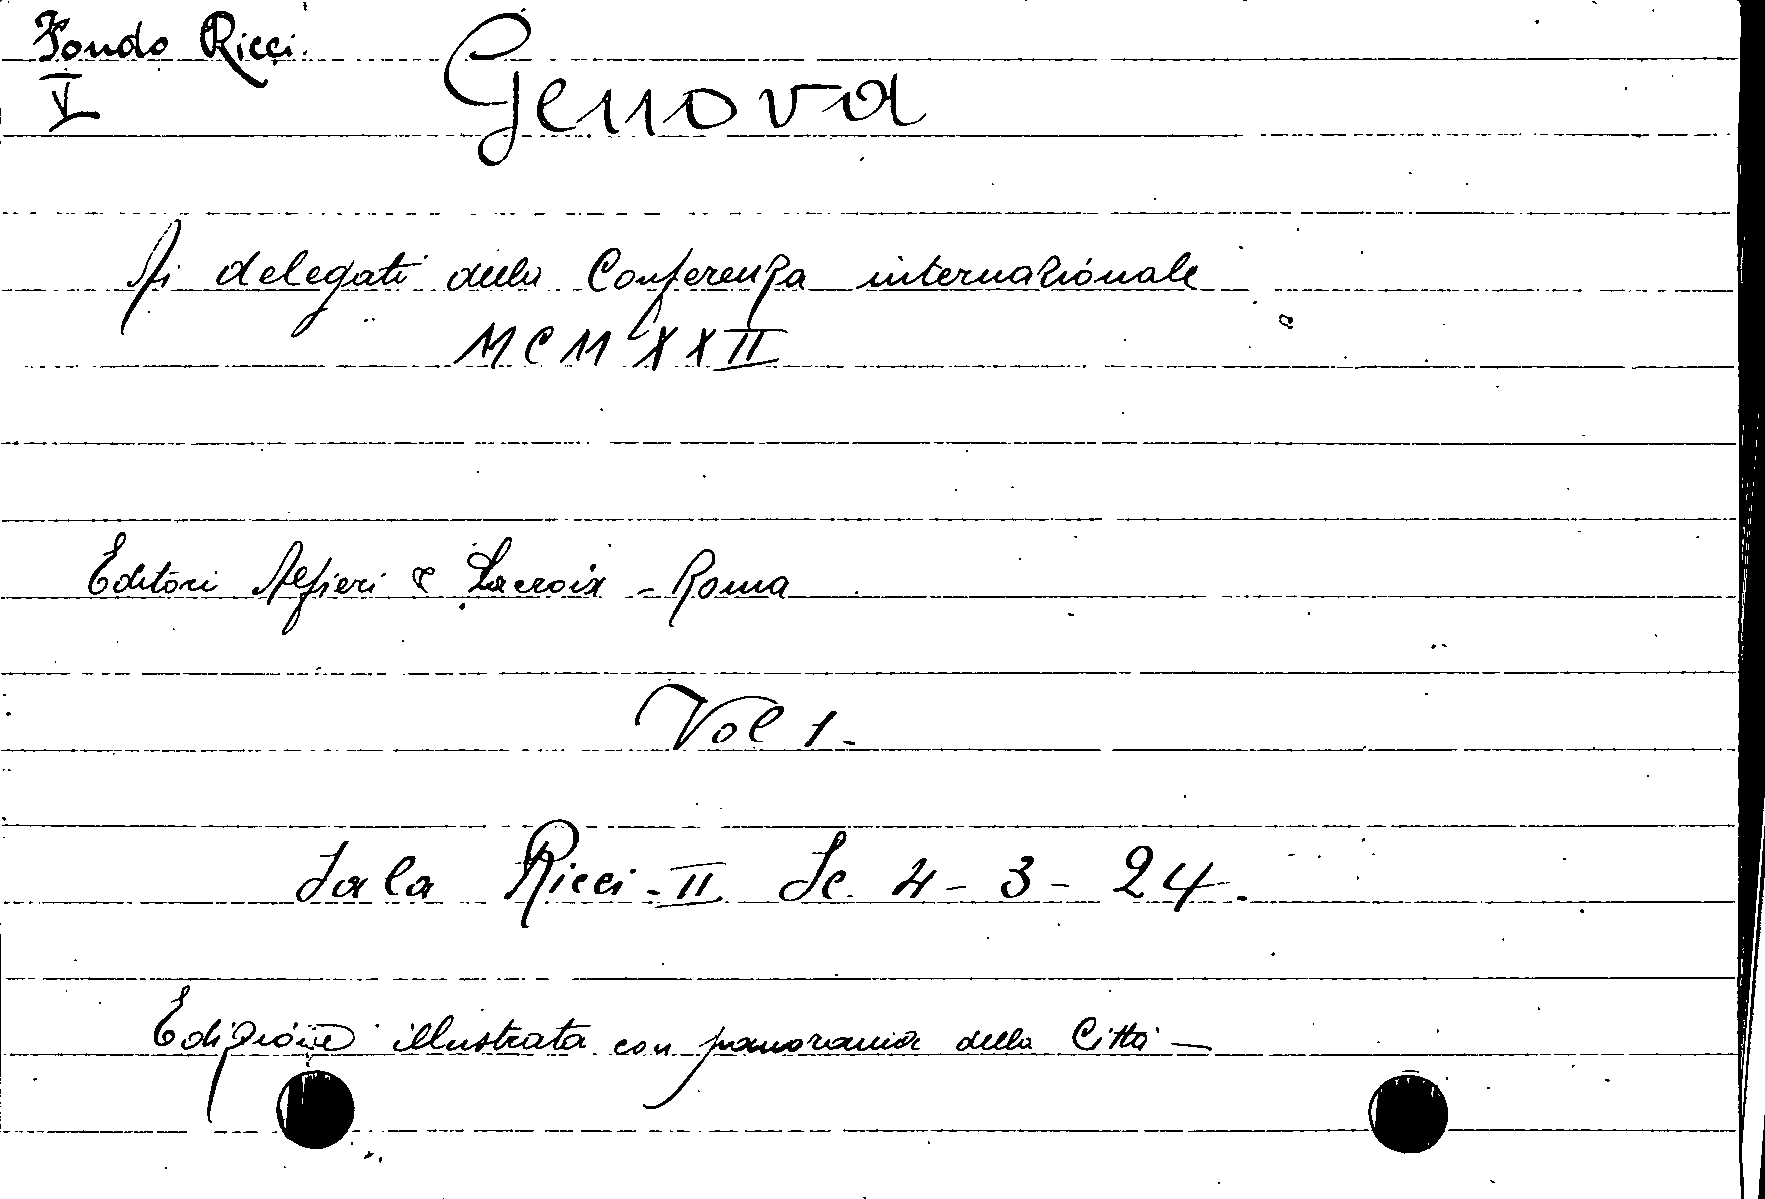 Fondo Ricci.
V
Genova
Ai delegati della Conferenza internazionale
MCMXXII
Editori Alfieri & Lacroix - Roma
Vol 1.
Sala Ricci - II Sc. 4 - 3 - 24.
Edizione illustrata con panorama della Città —